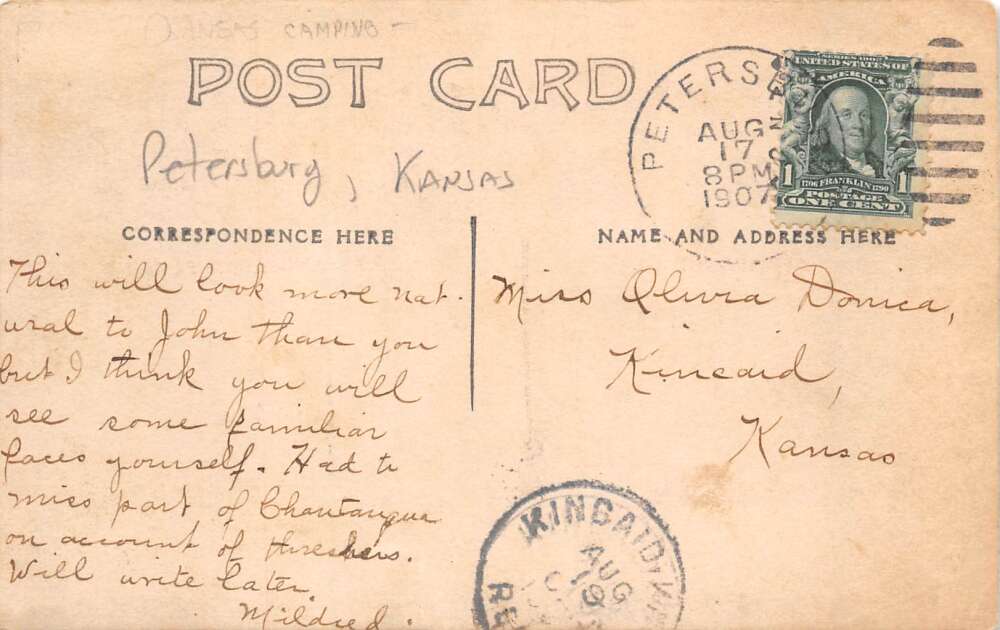 KANSAS CAMPING -
POST CARD
Petersburg, KANSAS
PETERSB
AUG
17
8 PM
1907
KANS.
SERIES 1902
UNITED STATES OF
AMERICA
1 1
1706 FRANKLIN 1790
POSTAGE
ONE CENT
CORRESPONDENCE HERE
This will look more nat-
ural to John than you
but I think you will
see some familiar
faces yourself. Had to
miss part of Chautauqua
on account of threshers.
Will write later.
Mildred.
NAME AND ADDRESS HERE
Miss Olivia Donica,
Kincaid,
Kansas
KINCAID, KAN
AUG
19